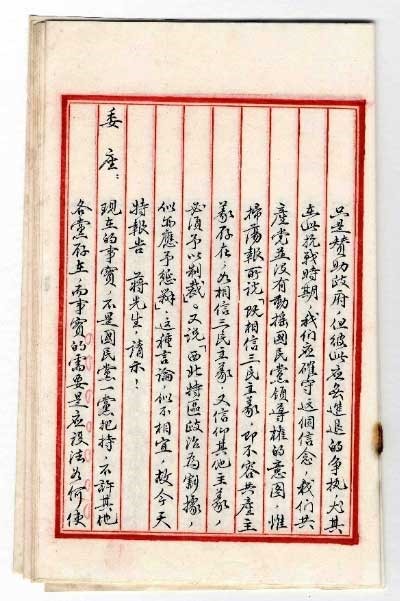 只是贊助政府，但彼此應無進退的争执，尤其
在此抗戰時期，我们应確守這個信念，我们共
產党並没有動搖國民黨領導權的意图，惟
掃蕩報所说「既相信三民主義，即不容共產主
義存在，如相信三民主義，又信仰其他主義，
必須予以制裁」又說「西北特區政治為割據，
似亦應予懲辦」這種言論，似不相宜，故今天
特報告　蔣先生，請示！
委座：現在的事實，不是國民黨一黨把持，不許其他
各黨存在，而事實的需要是应設法如何使